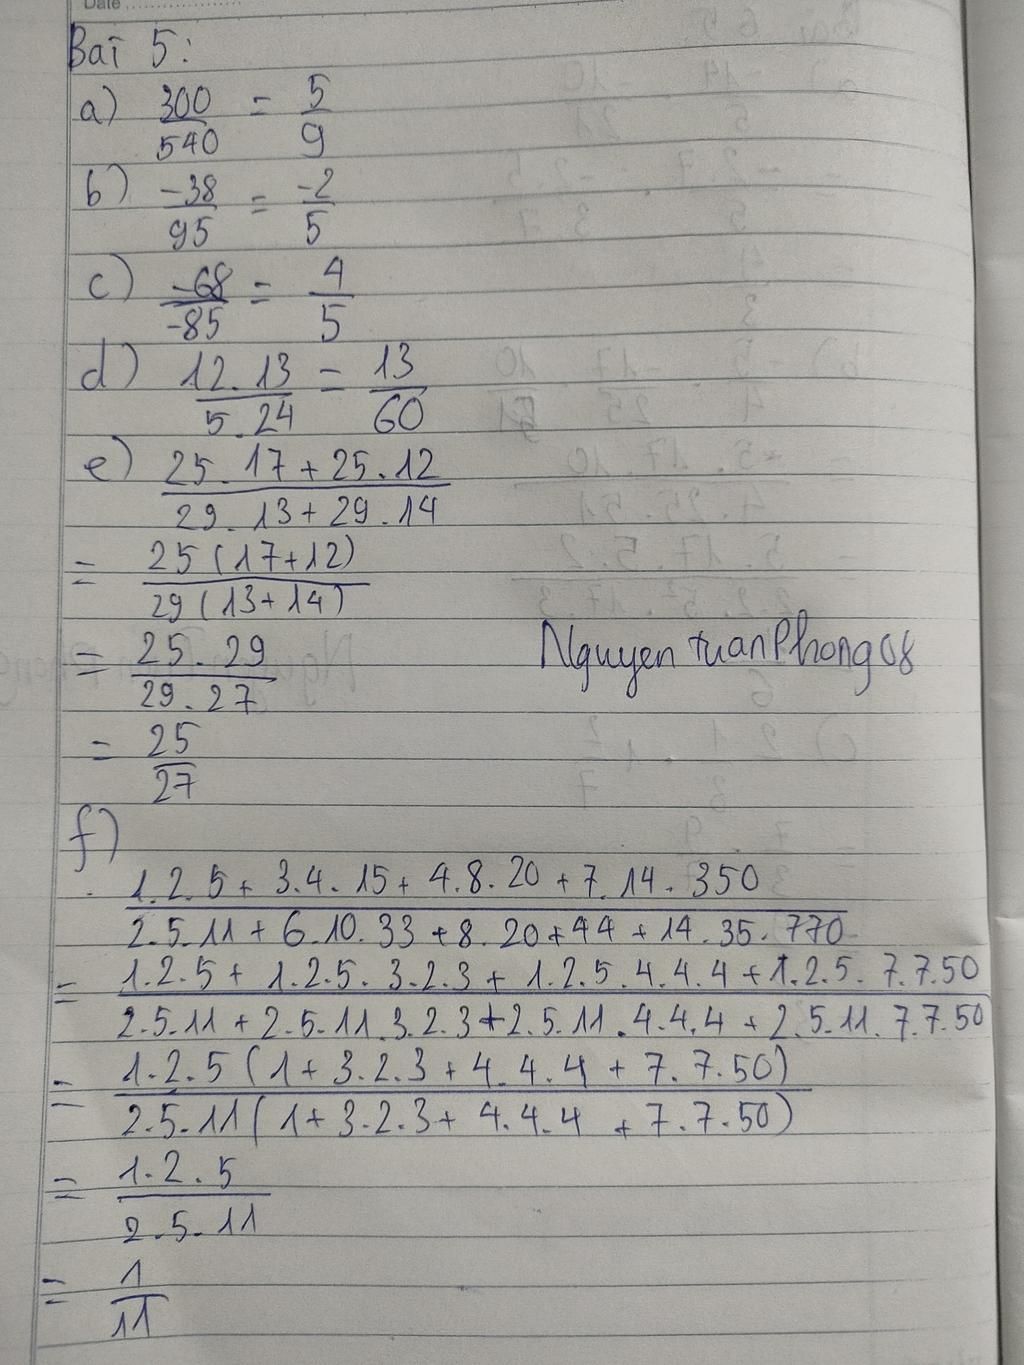 Date
Bai 5:
a) 300/540 = 5/9
b) -38/95 = -2/5
c) -68/-85 = 4/5
d) 12.13/5.24 = 13/60
e) 25.17+25.12/29.13+29.14
= 25(17+12)/29(13+14)
= 25.29/29.27
Nguyen tuanPhong08
= 25/27
f)
1.2.5+3.4.15+4.8.20+7.14.350/2.5.11+6.10.33+8.20+44+14.35.770
= 1.2.5+1.2.5.3.2.3+1.2.5.4.4.4+1.2.5.7.7.50/2.5.11+2.5.11.3.2.3+2.5.11.4.4.4+2.5.11.7.7.50
= 1.2.5(1+3.2.3+4.4.4+7.7.50)/2.5.11(1+3.2.3+4.4.4+7.7.50)
= 1.2.5/2.5.11
= 1/11